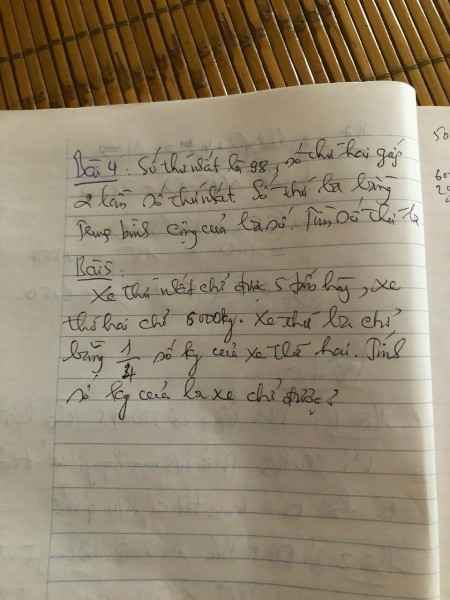 Bài 4: Số thứ nhất là 98, số thứ hai gấp
2 lần số thứ nhất. Số thứ ba bằng
Trung bình cộng của ba số. Tìm số thứ ba
Bài 5:
Xe thứ nhất chở được 5 tấn hàng, xe
thứ hai chở 6000kg. Xe thứ ba chở
bằng 1/4 số kg của xe thứ hai. Tính
số kg của ba xe chở được?
50